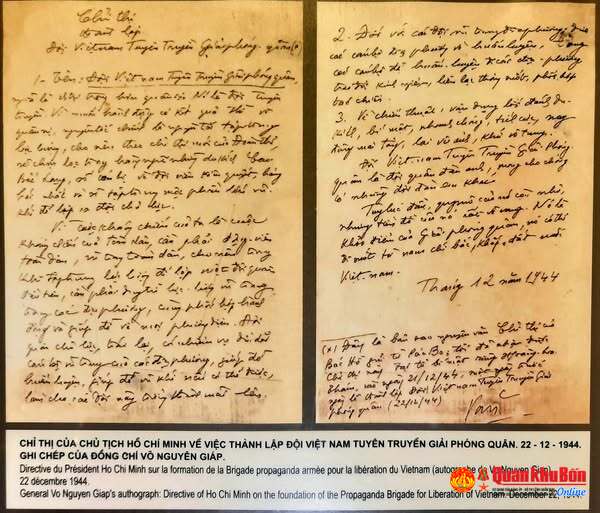 Chỉ thị
thành lập
Đội Việtnam Tuyên Truyền Giải phóng quân (*)
1. Tên: Đội Việt nam Tuyên Truyền Giải phóng quân,
nghĩa là chính trị trọng hơn quân sự. Nó là đội tuyên
truyền. Vì muốn hành động có kết quả thì về
quân sự, nguyên tắc chính là nguyên tắc tập trung
lực lượng, cho nên theo chỉ thị mới của Đoàn thể
sẽ chọn lọc trong hàng ngũ những du kích Cao
Bắc Lạng, số cán bộ và đội viên kiên quyết, hăng
hái nhất và sẽ tập trung một phần lớn vũ
khí để lập ra đội chủ lực.
Vì cuộc kháng chiến của ta là cuộc
kháng chiến của toàn dân, cần phải động viên
toàn dân, vũ trang toàn dân, cho nên trong
khi tập trung lực lượng để lập một đội quân
đầu tiên, cần phải duy trì lực lượng vũ trang
trong các địa phương, cùng phối hợp hành
động và giúp đỡ về mọi phương diện. Đội
quân chủ lực trái lại, có nhiệm vụ dìu dắt
cán bộ vũ trang của các địa phương, giúp đỡ
huấn luyện, giúp đỡ vũ khí nếu có thể được,
làm cho các đội này trưởng thành mãi lên.
2. Đối với các đội vũ trang địa phương, đưa
các cán bộ địa phương về huấn luyện, tung
các cán bộ đã huấn luyện đi các địa phương
trao đổi kinh nghiệm, liên lạc thông suốt, phối hợp
tác chiến.
3. Về chiến thuật, vận dụng lối đánh du
kích, bí mật, nhanh chóng, tích cực, nay
đông mai tây, lai vô ảnh, khứ vô tung.
Đội Việt nam Tuyên Truyền Giải Phóng
quân là đội quân đàn anh, mong cho chóng
có những đội đàn em khác.
Tuy lúc đầu, quy mô của nó còn nhỏ,
nhưng tiền đồ của nó rất vẻ vang. Nó là
khởi điểm của Giải phóng quân, nó có thể
đi suốt từ nam chí bắc, khắp đất nước
Việt-nam.
Tháng 12 năm 1944
(*) Đây là bản sao nguyên văn Chỉ thị của
Bác Hồ gửi từ Pác Bó, tôi đã nhận được
Chỉ thị này tại
Khám, vào ngày 21/12/44, một ngày trước
ngày lễ thành lập Đội Việtnam Tuyên Truyền Giải
phóng quân (22/12/44)
Văn
CHỈ THỊ CỦA CHỦ TỊCH HỒ CHÍ MINH VỀ VIỆC THÀNH LẬP ĐỘI VIỆT NAM TUYÊN TRUYỀN GIẢI PHÓNG QUÂN. 22 - 12 - 1944.
GHI CHÉP CỦA ĐỒNG CHÍ VÕ NGUYÊN GIÁP.
Directive du Président Ho Chi Minh sur la formation de la Brigade propaganda armée pour la libération du Vietnam (autographe de Vo Nguyen Giap)
22 décembre 1944.
General Vo Nguyen Giap's authograph: Directive of Ho Chi Minh on the foundation of the Propaganda Brigade for Liberation of Vietnam. December 22, 1944.
QUÂN KHU BỐN
Online